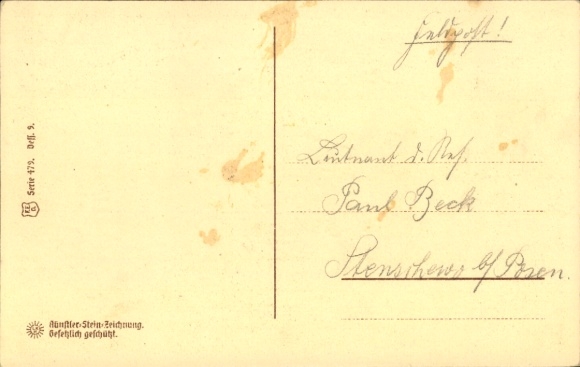 Feldpost!
Leutnant d. Res.
Paul Beck
Stenschewo b/ Posen.
Serie 479. Dess. 9.
Künstler-Stein-Zeichnung.
Gesetzlich geschützt.